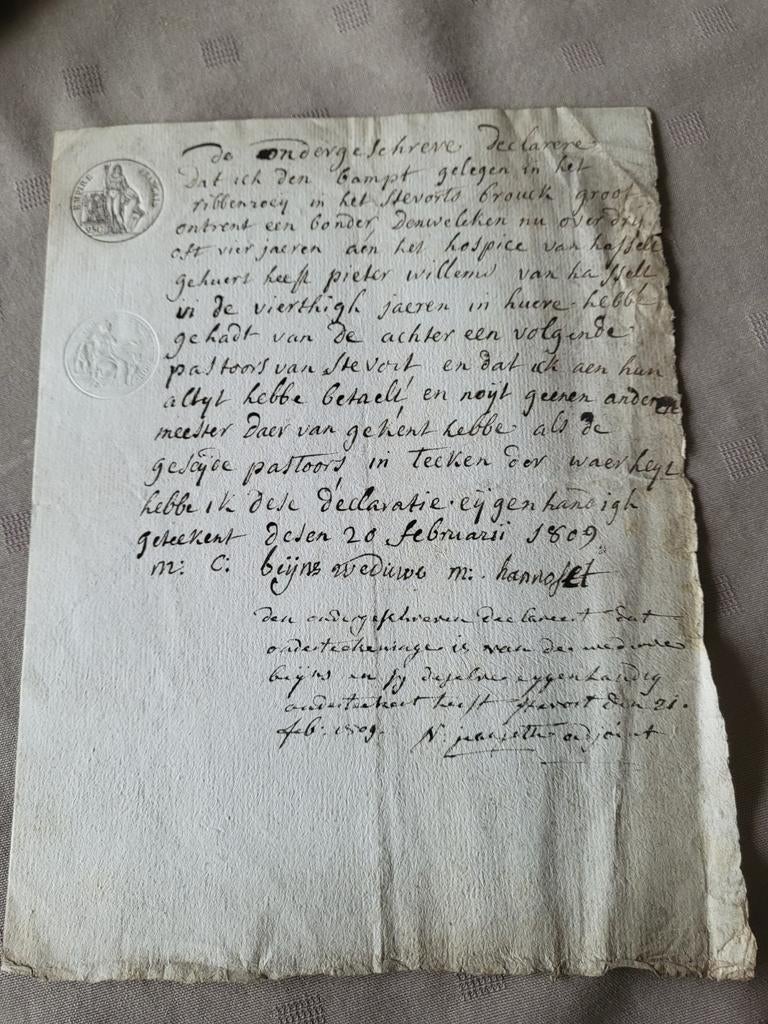 EMPIRE FRANÇAIS
de ondergeschreve declarere
dat ick den bampt gelegen in het
ribbenroeij in het stevorts brouck groot
ontrent een bonder denwelcken nu over drij
oft vier jaeren aen het hospice van hasselt
gehuert heeft pieter willems van hasselt
in de vierthigh jaeren in huere hebbe
gehadt van de achter een volgende
pastoors van stevort en dat ick aen hun
altyt hebbe betaelt en noijt geenen anderen
meester daer van gekent hebbe als de
geseijde pastoors in teecken der waerheijt
hebbe ik dese declaratie eijgenhandigh
geteekent desen 20 februarii 1809
m: C: beijns weduwe m: hannosset
den ondergeschreven declareert dat
ondertekeninge is van de weduwe
beijns en sy deselve eygenhandig
ondertekent heeft stevort den 21
feb. 1809. N: adjoint